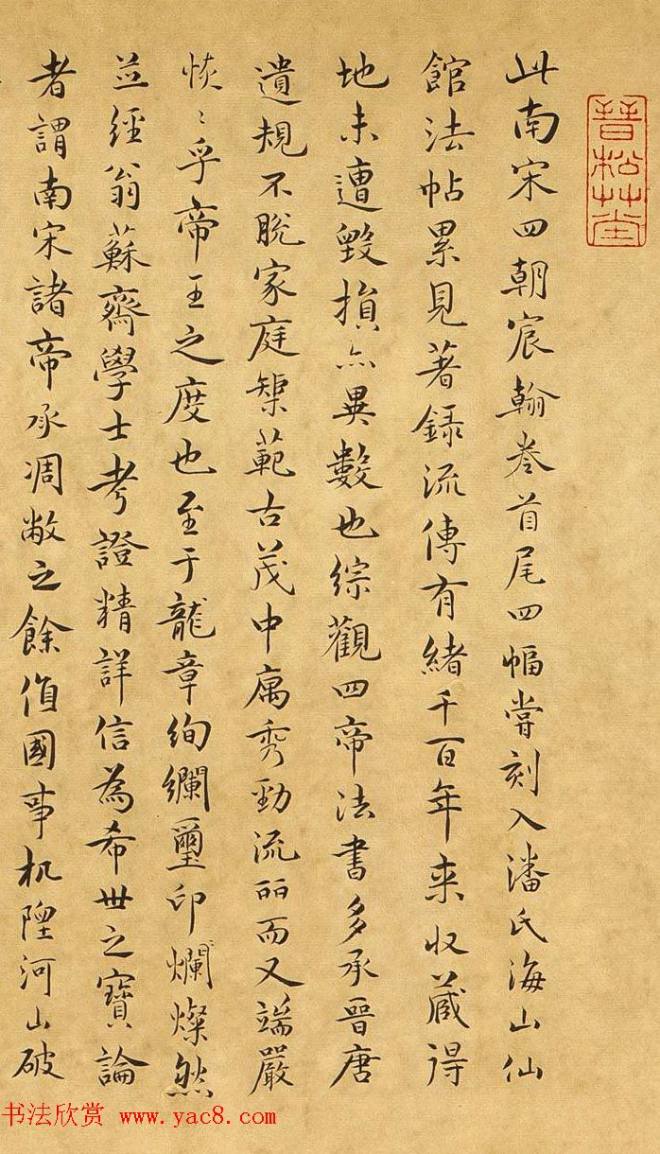 晉松艸堂
此南宋四朝宸翰卷首尾四幅嘗刻入潘氏海山仙
館法帖累見著錄流傳有緒千百年来収蔵得
地未遭毀損亦異數也綜觀四帝法書多承晉唐
遺規不脫家庭榘範古茂中寓秀勁流丽而又端嚴
恢〻乎帝王之度也至于龍章絢斕璽印爛燦然
並經翁蘇齋學士考證精詳信為希世之寶論
者謂南宋諸帝承凋敝之餘值國事杌隉河山破
书法欣赏 www.yac8.com